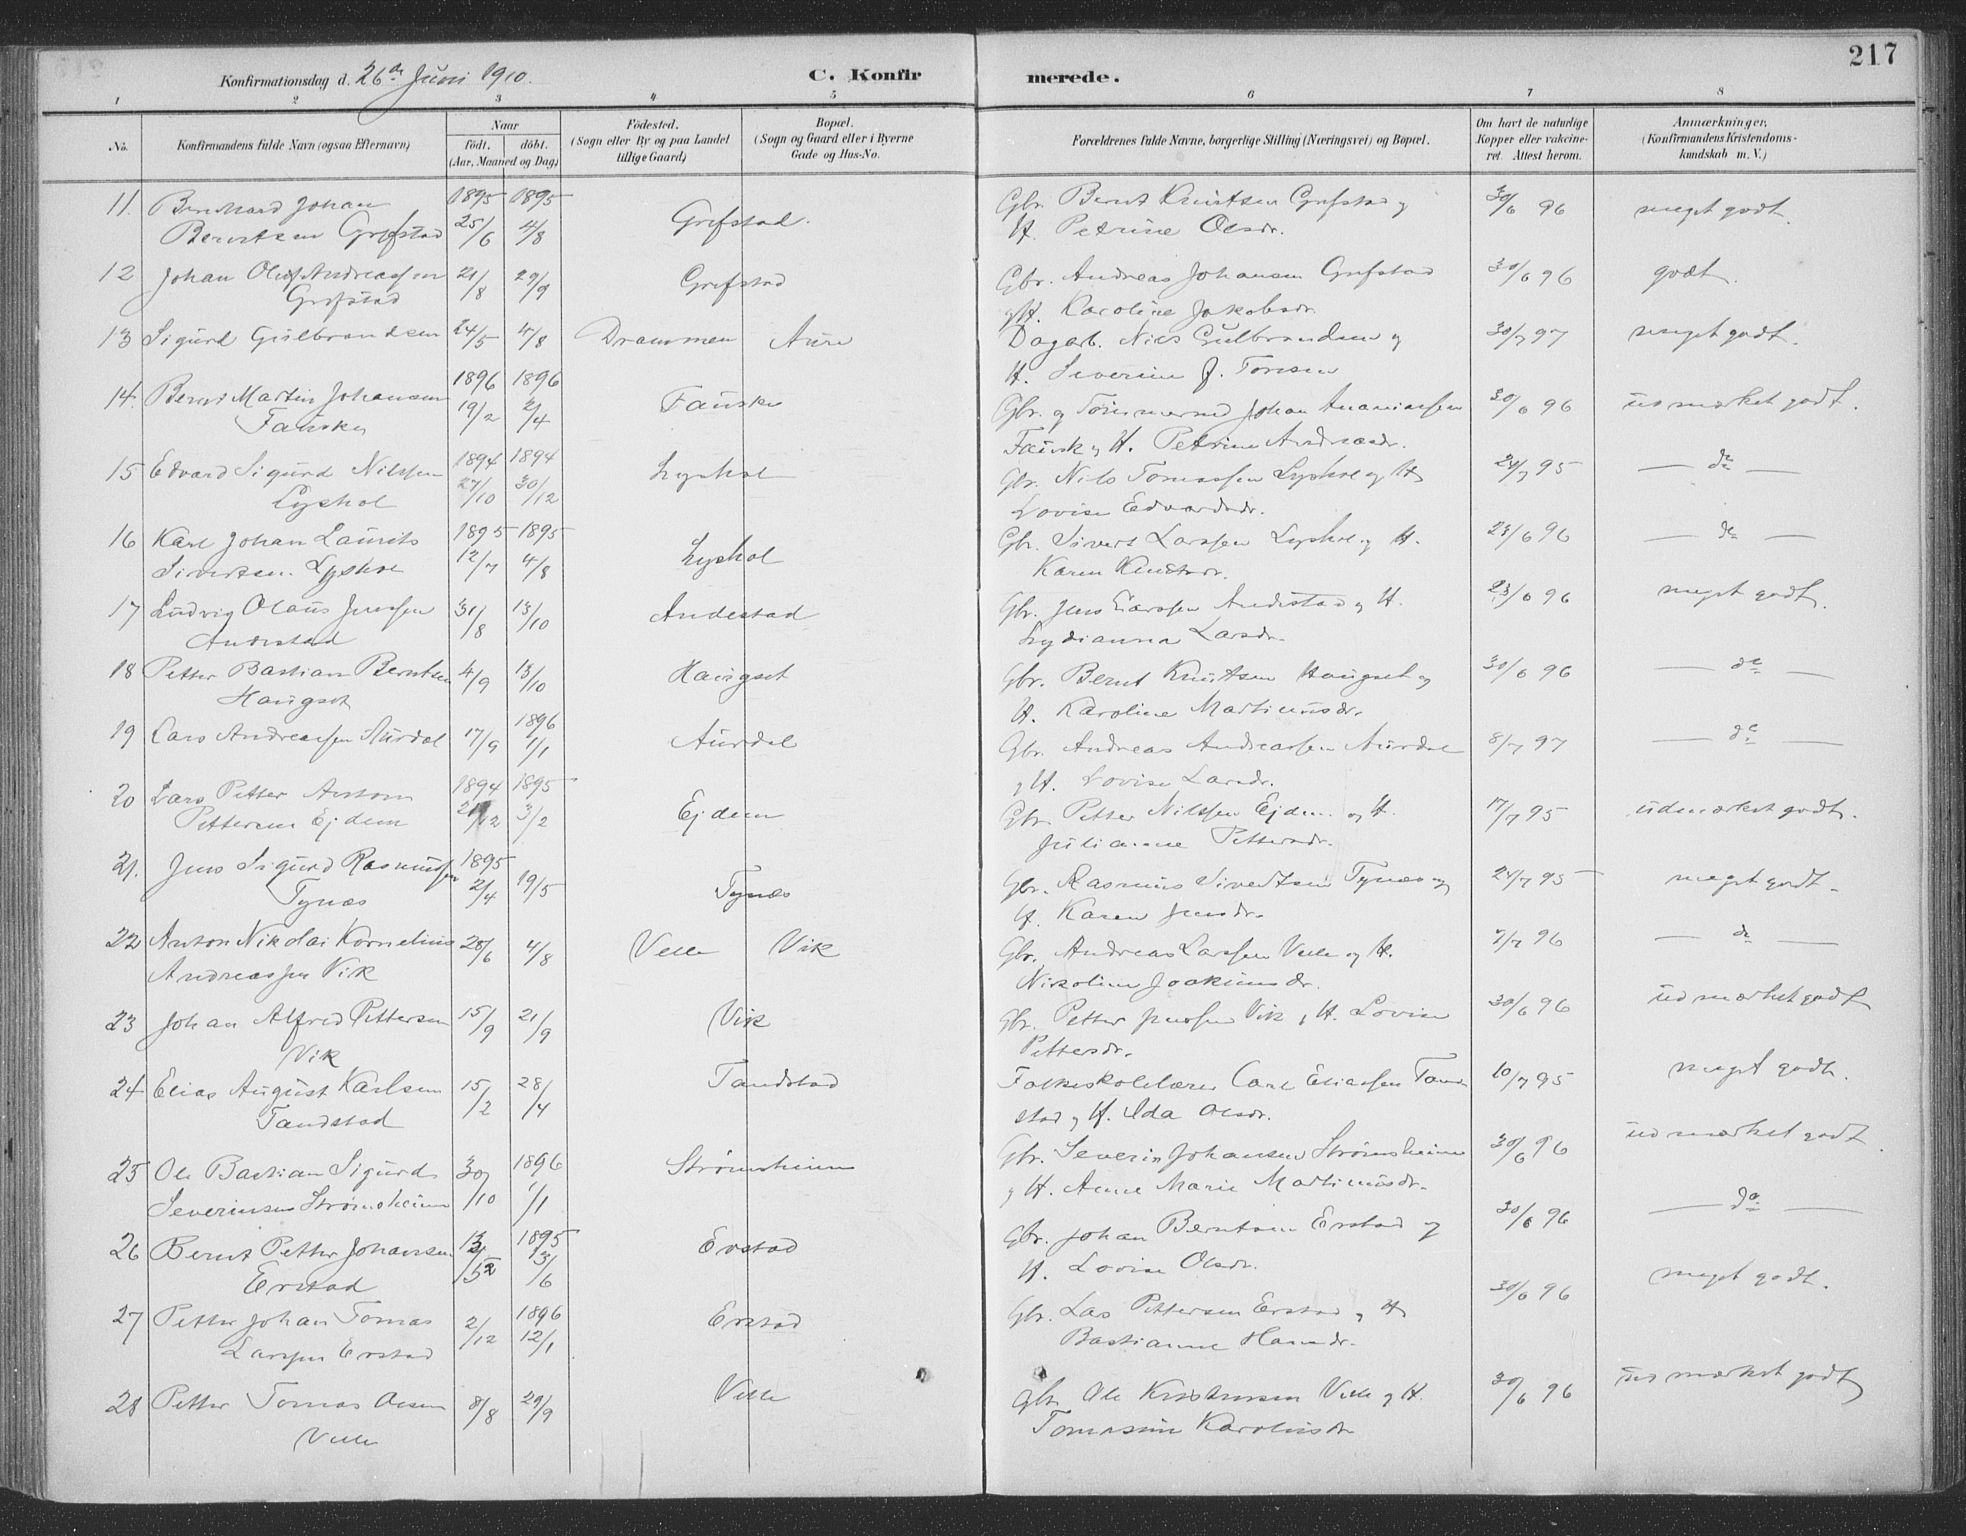 217
Konfirmationsdag d. 26de Juni 1910. C. Konfirmerede.
1 2 3 4 5 6 7 8
No. Konfirmandens fulde Navn (ogsaa Efternavn) Naar födt. döbt. (Aar, Maaned og Dag) Födested. (Sogn eller By og paa Landet tillige Gaard) Bopæl. (Sogn og Gaard eller i Byerne Gade og Hus-No. Forældrenes fulde Navne, borgerlige Stilling (Næringsvei) og Bopæl. Om havt de naturlige Kopper eller vakcineret. Attest herom. Anmærkninger. (Konfirmandens Kristendomskundskab m. V.)
11. Bernhard Johan 1895 1895 Gbr. Bernt Knutsen Grefstad og 30/6 96 meget godt.
Berntsen Grefstad 25/6 4/8 Grefstad. H. Petrine Olsdr.
12 Johan Oluf Andreassen 21/8 29/9 Grefstad Gbr. Andreas Johansen Grefstad 30/6 96 godt.
Grefstad og H. Karoline Jakobsdr.
13 Sigurd Gulbrandsen 24/5 4/8 Drammen Aure Dagarb. Nils Gulbrandsen og 30/7 97 meget godt.
H. Severine J. Toresen
14. Bernt Martin Johansen 1896 19/2 1896 2/4 Fauske Gbr. og Tömmermd Johan Ananiassen 30/6 96 udmærket godt.
Fauske Fausk og H. Petrine Andreasdr.
15 Edvard Sigurd Nilssen 1894 27/10 1894 30/12 Lyshol Gbr. Nils Tomassen Lyshol og H. 24/7 95 — do —
Lyshol Lovise Edvardsdr.
16 Karl Johan Laurits 1895 1895 Gbr. Sivert Larssen Lyshol og H. 23/6 96 — do —
Sivertsen Lyshol 12/7 4/8 Lyshol Karen Knutsdr.
17 Ludvig Olaus Jenssen 31/8 13/10 Andestad Gbr. Jens Larssen Andestad og H. 23/6 96 meget godt.
Andestad Lydianna Larsdr.
18 Petter Bastian Berntsen 4/9 13/10 Haugset Gbr. Bernt Knutsen Haugset og 30/6 96 — do —
Haugset H. Karoline Martinusdr.
19 Lars Andreassen Aurdal 17/9 1896 1/1 Aurdal Gbr. Andreas Andreassen Aurdal 8/7 97 — do —
og H. Lovise Larsdr.
20 Lars Petter Antom 1894 1895 Gbr. Petter Nilssen Ejdem og H. 17/7 95 udmærket godt.
Pettersen Ejdem /12 3/2 Ejdem Juliane Pettersdr.
21. Jens Sigurd Rasmussen 1895 2/4 19/5 Tynæs Gbr. Rasmus Sivertsen Tynæs og 24/7 95 meget godt.
Tynæs H. Karen Jensdr.
22 Anton Nikolai Kornelius 28/6 4/8 Velle Vik Gbr. Andreas Larssen Velle og H. 7/7 96 — do —
Andreassen Vik Nikoline Joakimsdr.
23 Johan Alfred Pettersen 15/9 21/9 Vik Gbr. Petter Jenssen Vik og H. Lovise 30/6 96 udmærket godt
Vik Pettersdr.
24 Elias August Karlsen 15/2 28/4 Tandstad Folkeskolelærer Carl Eliassen Tand- 10/7 95 meget godt.
Tandstad stad og H. Ida Olsdr.
25 Ole Bastian Sigurd 30/10 1896 1/1 Strömsheim Gbr. Severin Johansen Strömsheim 30/6 96 udmærket godt
Severinsen Strömsheim og H. Anne Marie Martinusdr.
26 Bernt Petter Johansen 1895 13/6 Erstad Gbr. Johan Berntsen Erstad og 30/6 96 — do —
Erstad H. Lovise Olsdr.
27 Petter Johan Tomas 2/12 1896 12/1 Erstad Gbr. Las Pettersen Erstad og H. 30/6 96 meget godt.
Larssen Erstad Bastianne Hansdr.
28 Petter Tomas Olsen 8/8 29/9 Velle Gbr. Ole Kristensen Velle og H. 30/6 96 udmærket godt
Velle Tomasine Karolusdr